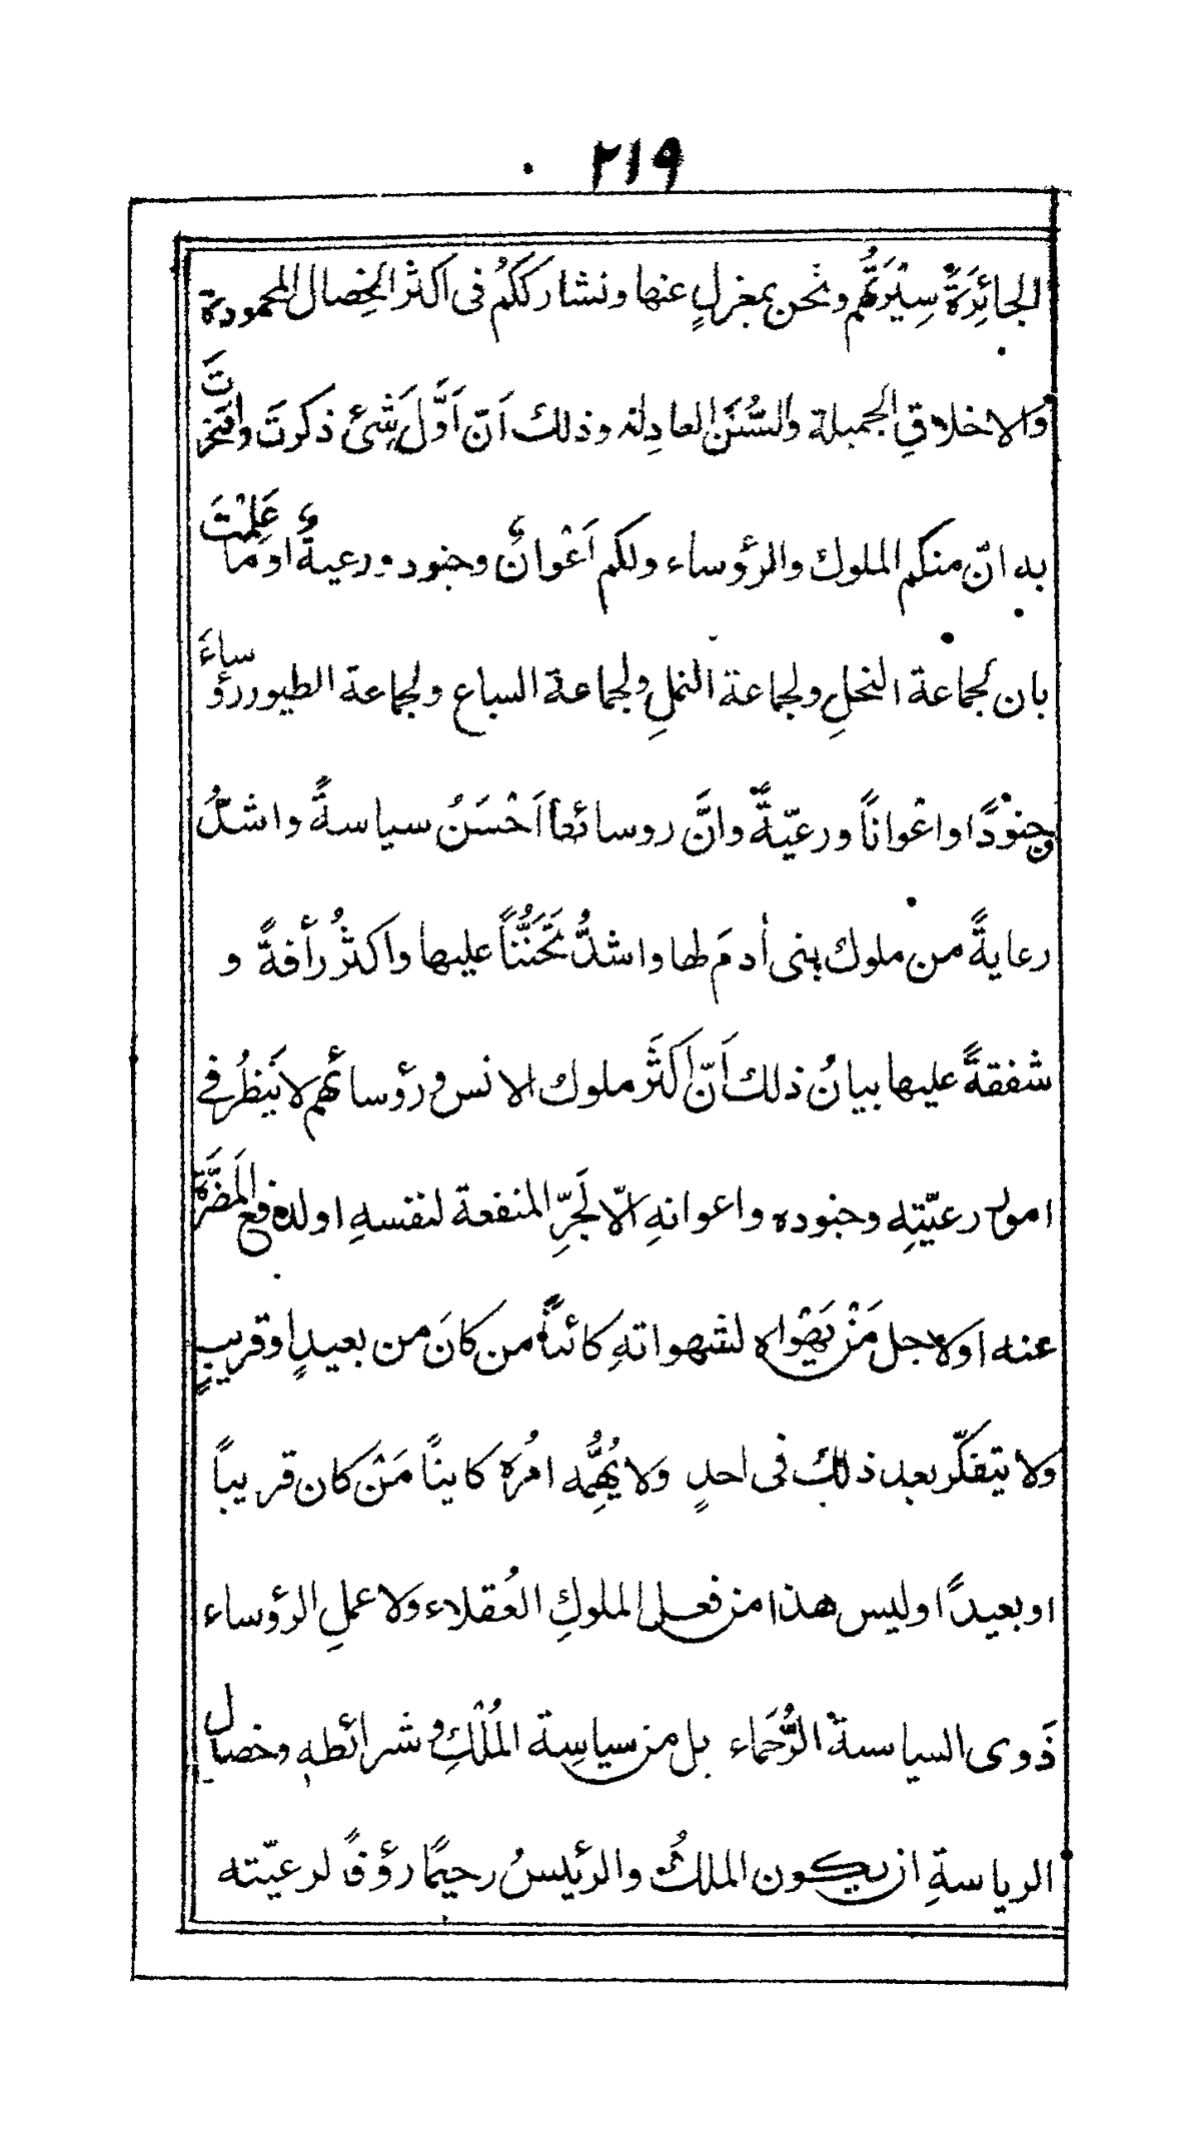 ۲۱۹
الجائِرَةُ سِيْرَتُهُم ونحن بمعزلٍ عنها ونشاركُكُم فى اكثر الخِصال المحمودة
والاخلاقِ الجميلة والسُّنَن العادِلة وذلك اَنّ اَوَّلَ شَئٍ ذكرتَ وافتخرتَ
به انّ منكم الملوك والرؤساء ولكم اَعْوانٌ وجنود ورعيةٌ اوَمَا عَلِمْتَ
بان لجماعة النحلِ ولجماعة النملِ ولجماعة السباع ولجماعة الطيور رؤساءَ
وجنودًا واعْواناً ورعيّةً وانَّ روسائها اَحْسَنُ سياسةً واشدُّ
رعايةً من ملوك بنى اٰدمَ لها واشدُّ تَحَنُّناً عليها واكثرُ رأفةً و
شفقةً عليها بيانُ ذلك اَنّ اَكثَر ملوك الانس ورؤسائهم لا يَنظُر في
امور رعيّتِه وجنوده واعوانهِ الّا لجَرِّ المنفعة لنفسهِ او لدفع المَضَرَّةِ
عنه او لاجل مَنْ يَهْواه لشهواتهِ كائناً من كانَ من بعيدٍ او قريبٍ
ولا يتفكّر بعد ذلك فى احدٍ ولا يُهِمُّه امْرُه كايناً مَنْ كان قريباً
او بعيدًا وليس هذا من فعل الملوكِ العُقلاء ولا عملِ الرؤساء
ذَوى السياسة الرُّحَماء بل من سياسِة المُلْكِ وشرائطه وخصال
الرياسةِ ان يكون الملكُ والرئيسُ رحيمًا رؤفًا لرعيّته